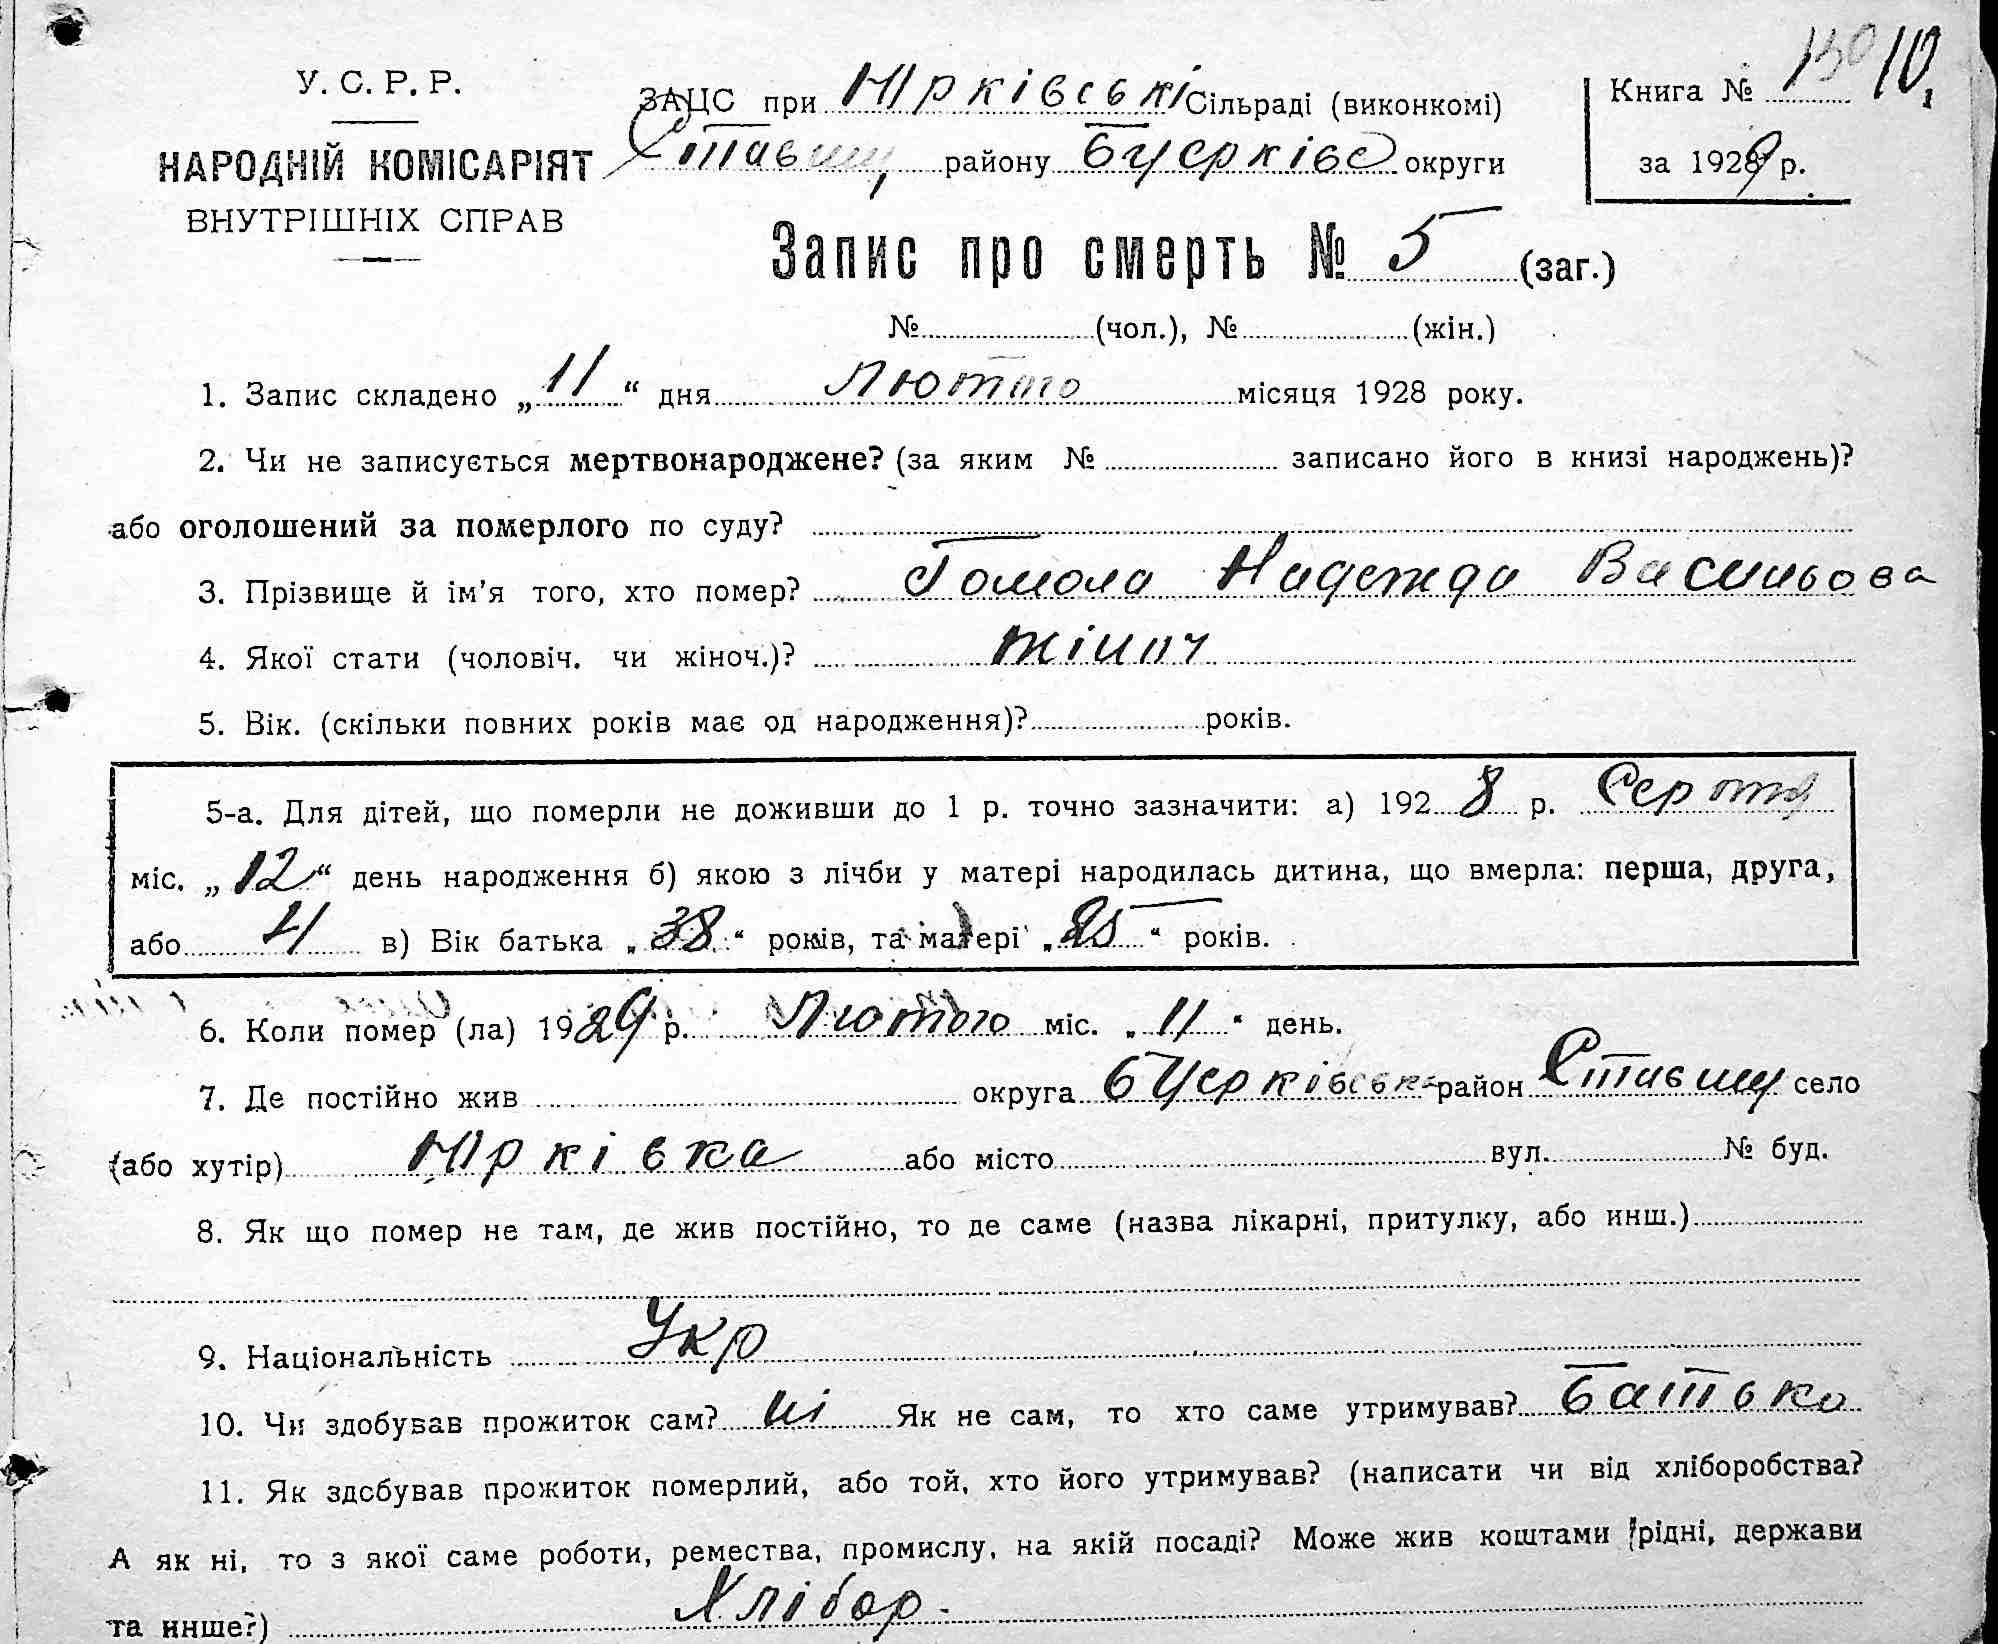 У. С. Р. Р.
НАРОДНІЙ КОМІСАРІЯТ
ВНУТРІШНІХ СПРАВ
ЗАЦС при Юрківські Сільраді (виконкомі)
Ставищ району БЦерківс округи
Книга № 10
за 1929 р.
Запис про смерть № 5 (заг.)
№ (чол.), № (жін.)
1. Запис складено „11“ дня Лютого місяця 1928 року.
2. Чи не записується мертвонароджене? (за яким № записано його в книзі народжень)?
або оголошений за померлого по суду?
3. Прізвище й ім'я того, хто помер? Гомола Надежда Васильова
4. Якої стати (чоловіч. чи жіноч.)? жіноч
5. Вік. (скільки повних років має од народження)? років.
5-а. Для дітей, що померли не доживши до 1 р. точно зазначити: а) 1928 р.
міс. „12“ день народження б) якою з лічби у матері народилась дитина, що вмерла: перша, друга,
або 4 в) Вік батька „38“ років, та матері „35“ років.
6. Коли помер (ла) 1929 р. Лютого міс. „11“ день.
7. Де постійно жив округа БЦерківськ район Ставищ село
(або хутір) Юрківка або місто вул. № буд.
8. Як що помер не там, де жив постійно, то де саме (назва лікарні, притулку, або инш.)
9. Національність Укр
10. Чи здобував прожиток сам? ні Як не сам, то хто саме утримував? батько
11. Як здобував прожиток померлий, або той, хто його утримував? (написати чи від хліборобства?
А як ні, то з якої саме роботи, ремества, промислу, на якій посаді? Може жив коштами рідні, держави
та инше?) Хлібор.